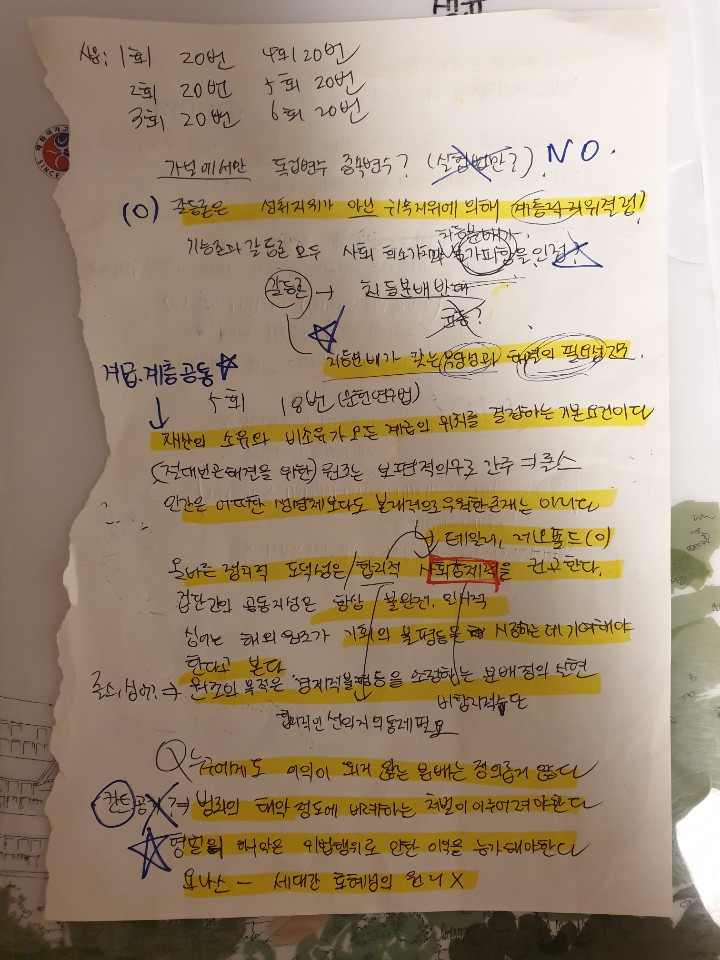 1회 20번 4회 20번
2회 20번 5회 20번
3회 20번 6회 20번
가설에서만 독립변수 종속변수? (실험법만?) NO.
(O) 갈등론은 성취지위가 아닌 귀속지위에 의해 계층적 지위결정?
기능론과 갈등론 모두 사회 희소가치 불가피함을 인정?
차등분배가
갈등론 → 차등분배 반대
차등분배가 갖는 해결의 필요성
계급.계층공통 ☆
5회 18번 (문헌연구법)
↓ 재산의 소유와 비소유가 모든 계급의 위치를 결정하는 기본요건이다
(절대빈곤해결을 위한) 원조는 보편적의무로 간주 ⇒ 롤스
인간은 어떠한 생명체보다도 본래적으로 우월한 존재는 아니다
테일러, 레오폴드 (O)
올바른 정치적 도덕성은 합리적 사회통제적을 권고한다.
집단간의 공동지성은 항상 불완전, 일시적
싱어는 해외원조가 기회의 불평등을 시정하는데 기여해야
한다고 본다
롤스, 싱어? ⇒ 원조의 목적은 경제적불평등을 조정하는 분배정의 실현
합리적인 선의지의 통제 필요
비합리적수단
Q 누구에게도 이익이 되지 않는 분배는 정의롭지 않다
칸트 ⇒ 범죄의 해악 정도에 비례하는 처벌이 이루어져야한다
☆ 형벌의 해악은 위법행위로 인한 이익을 능가해야한다
요나스 - 세대간 호혜성의 원리 X
SINCE